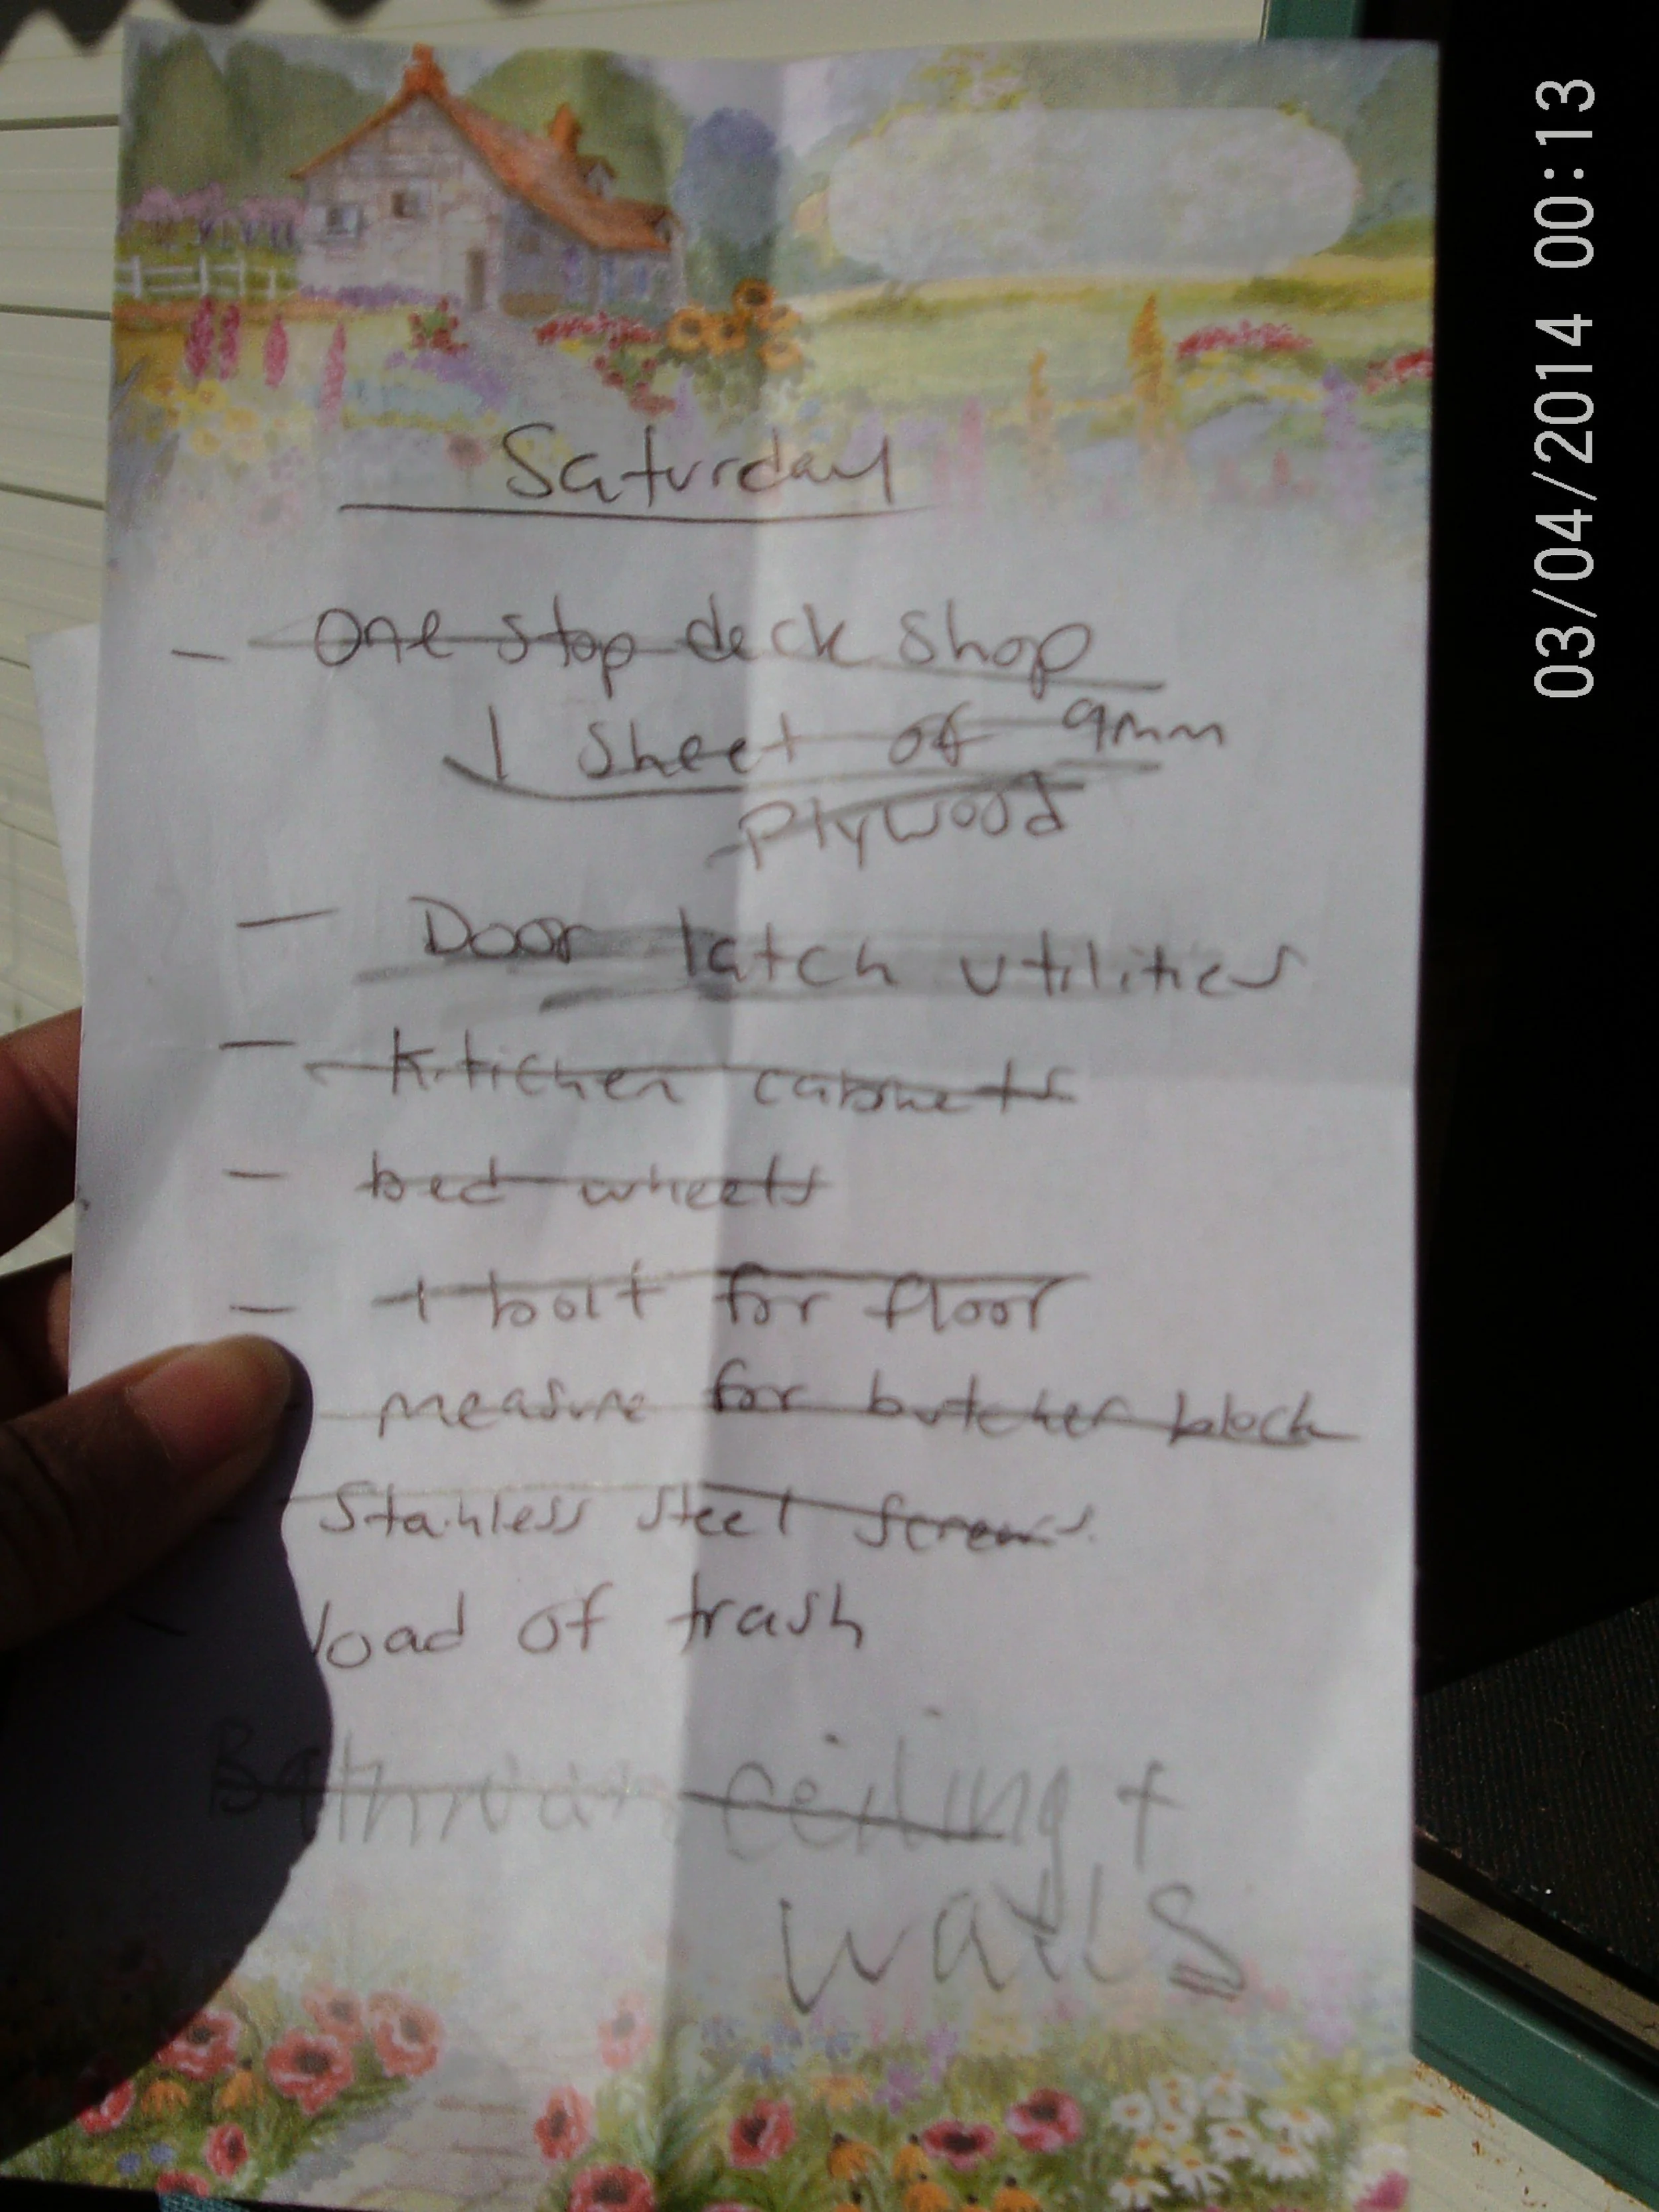 Saturday
- One stop deck shop
1 Sheet of 9mm
plywood
- Door latch utilities
- Kitichen cabinets
- bed wheels
- 1 bolt for floor
measure for butcher block
Stainless steel screws
load of trash
Bathroom ceiling +
walls
03/04/2014 00:13